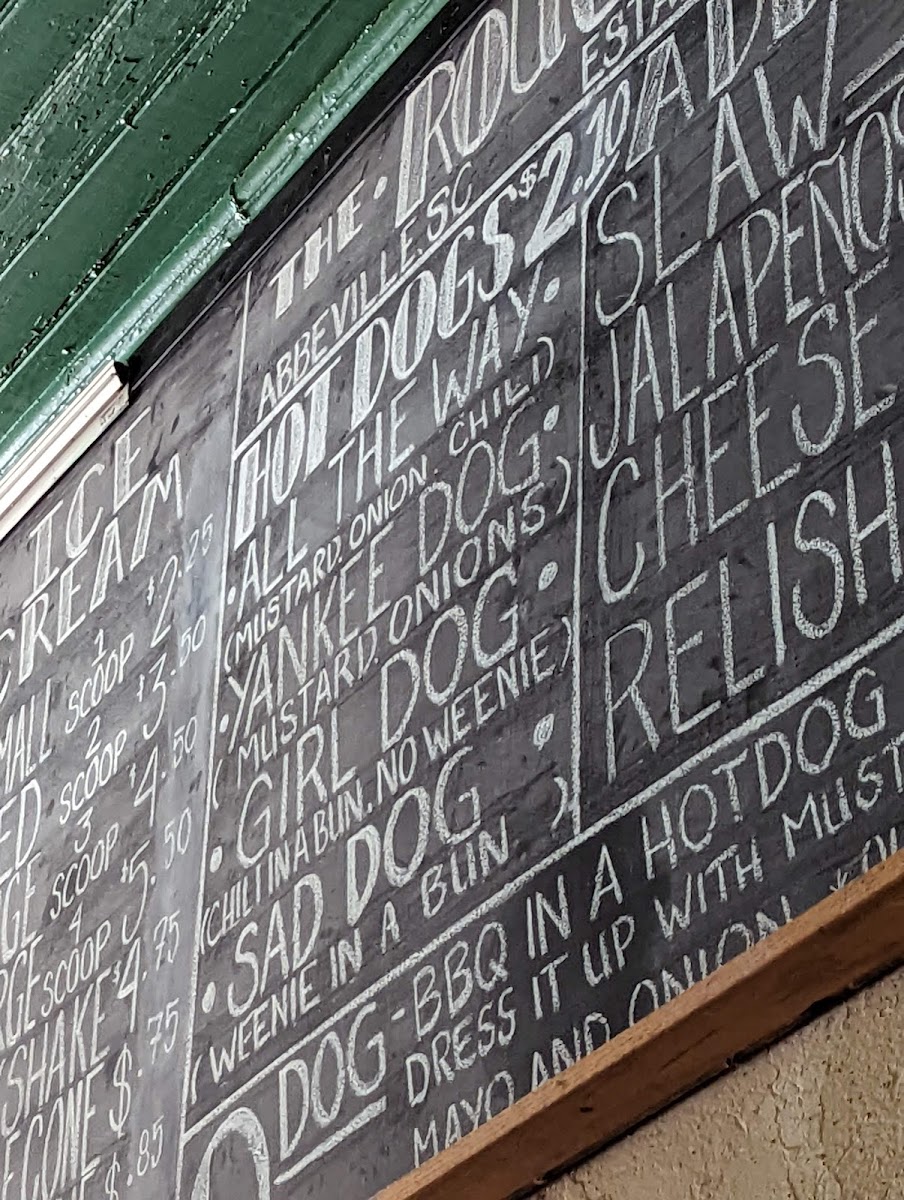 THE · ROU
ABBEVILLE, SC
ESTA
HOT DOGS $2.10
· ALL THE WAY ·
(MUSTARD, ONION, CHILI)
· YANKEE DOG ·
(MUSTARD, ONIONS)
· GIRL DOG ·
(CHILI IN A BUN, NO WEENIE)
· SAD DOG ·
(WEENIE IN A BUN)
ADD
SLAW
JALAPEÑOS
CHEESE
RELISH
DOG - BBQ IN A HOTDOG
DRESS IT UP WITH MUST
MAYO AND ONION
ICE
CREAM
MALL 1 SCOOP $2.25
ED 2 SCOOP $3.50
GE 3 SCOOP $4.50
RGE 4 SCOOP $5.50
SHAKE $4.75
E CONE $.75
$.85